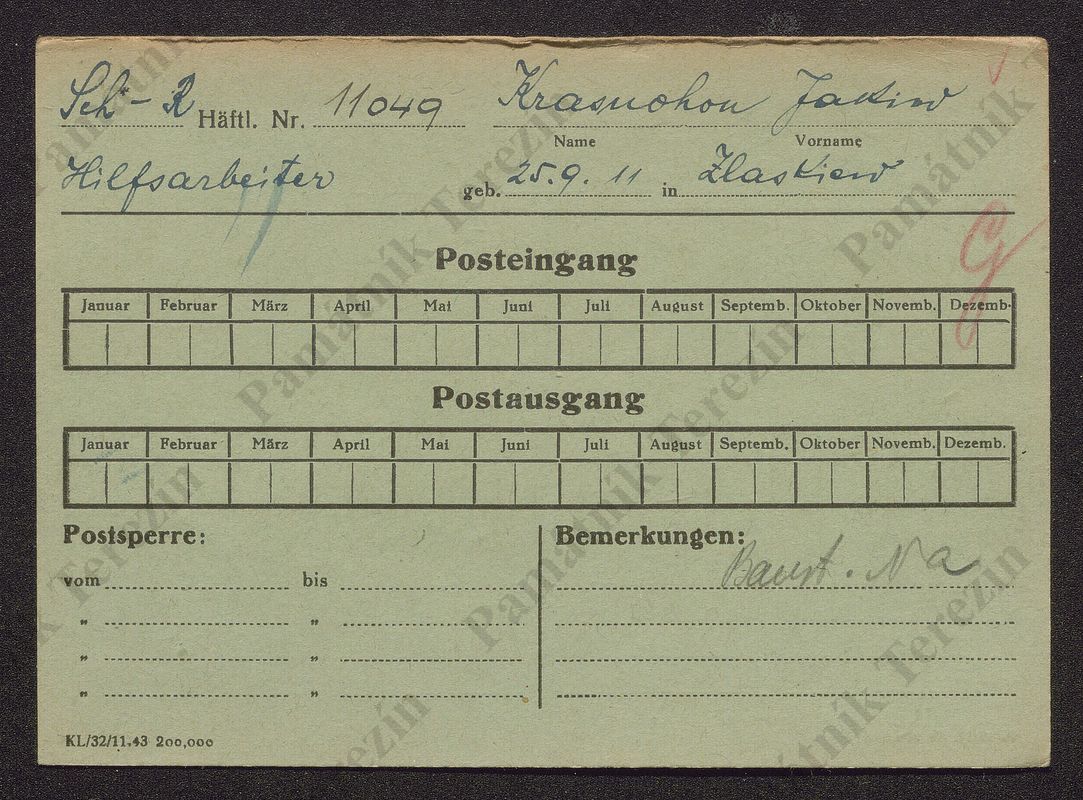 Sch-R Häftl. Nr. 11049 Krasnohon Jakiw
Name Vorname
Hilfsarbeiter geb. 25.9.11 in Zlaskiew
G
Posteingang
Januar Februar März April Mai Juni Juli August Septemb. Oktober Novemb. Dezemb.
Postausgang
Januar Februar März April Mai Juni Juli August Septemb. Oktober Novemb. Dezemb.
Postsperre: Bemerkungen:
vom bis Baust.
„ „
„ „
„ „
KL/32/11.43 200,000
Památník Terezín